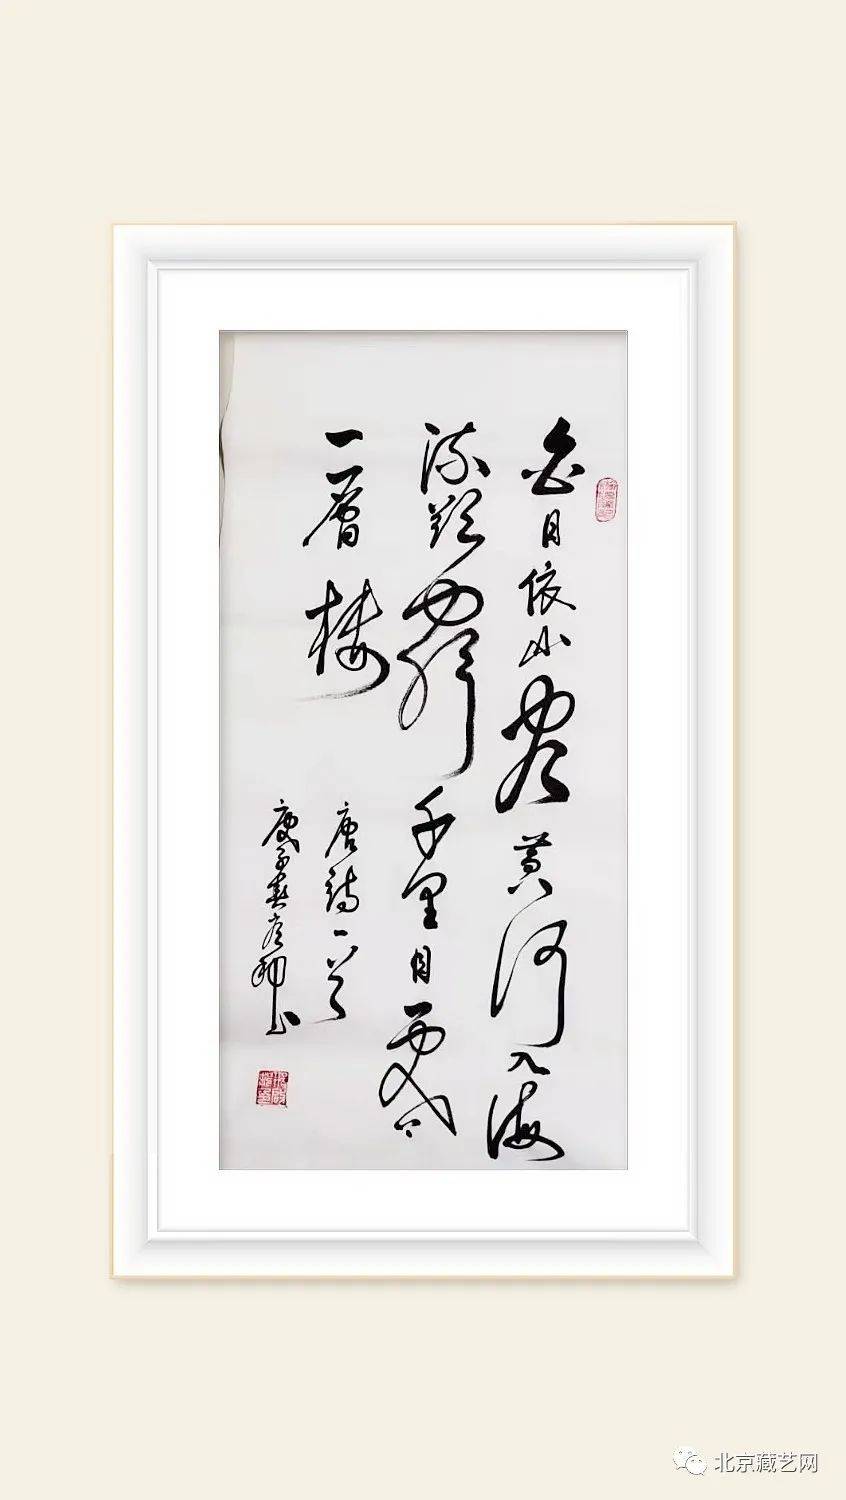 白日依山尽黄河入海
流欲穷千里目更上
一层楼
唐诗一首
庚子春
北京藏艺网